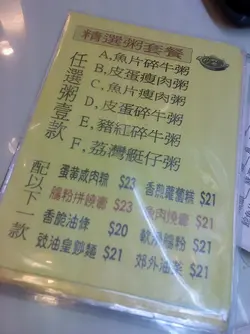 精選粥套餐
任選粥壹款
A,魚片碎牛粥
B,皮蛋瘦肉粥
C,魚片瘦肉粥
D,皮蛋碎牛粥
E,豬紅碎牛粥
F,荔灣艇仔粥
配以下一款
蛋蒟咸肉糭 $23 香煎蘿蔔糕 $21
腸粉拼炸兩 $23 $21
香脆油條 $20 腸粉 $21
豉油皇炒麵 $21 郊外油菜 $21